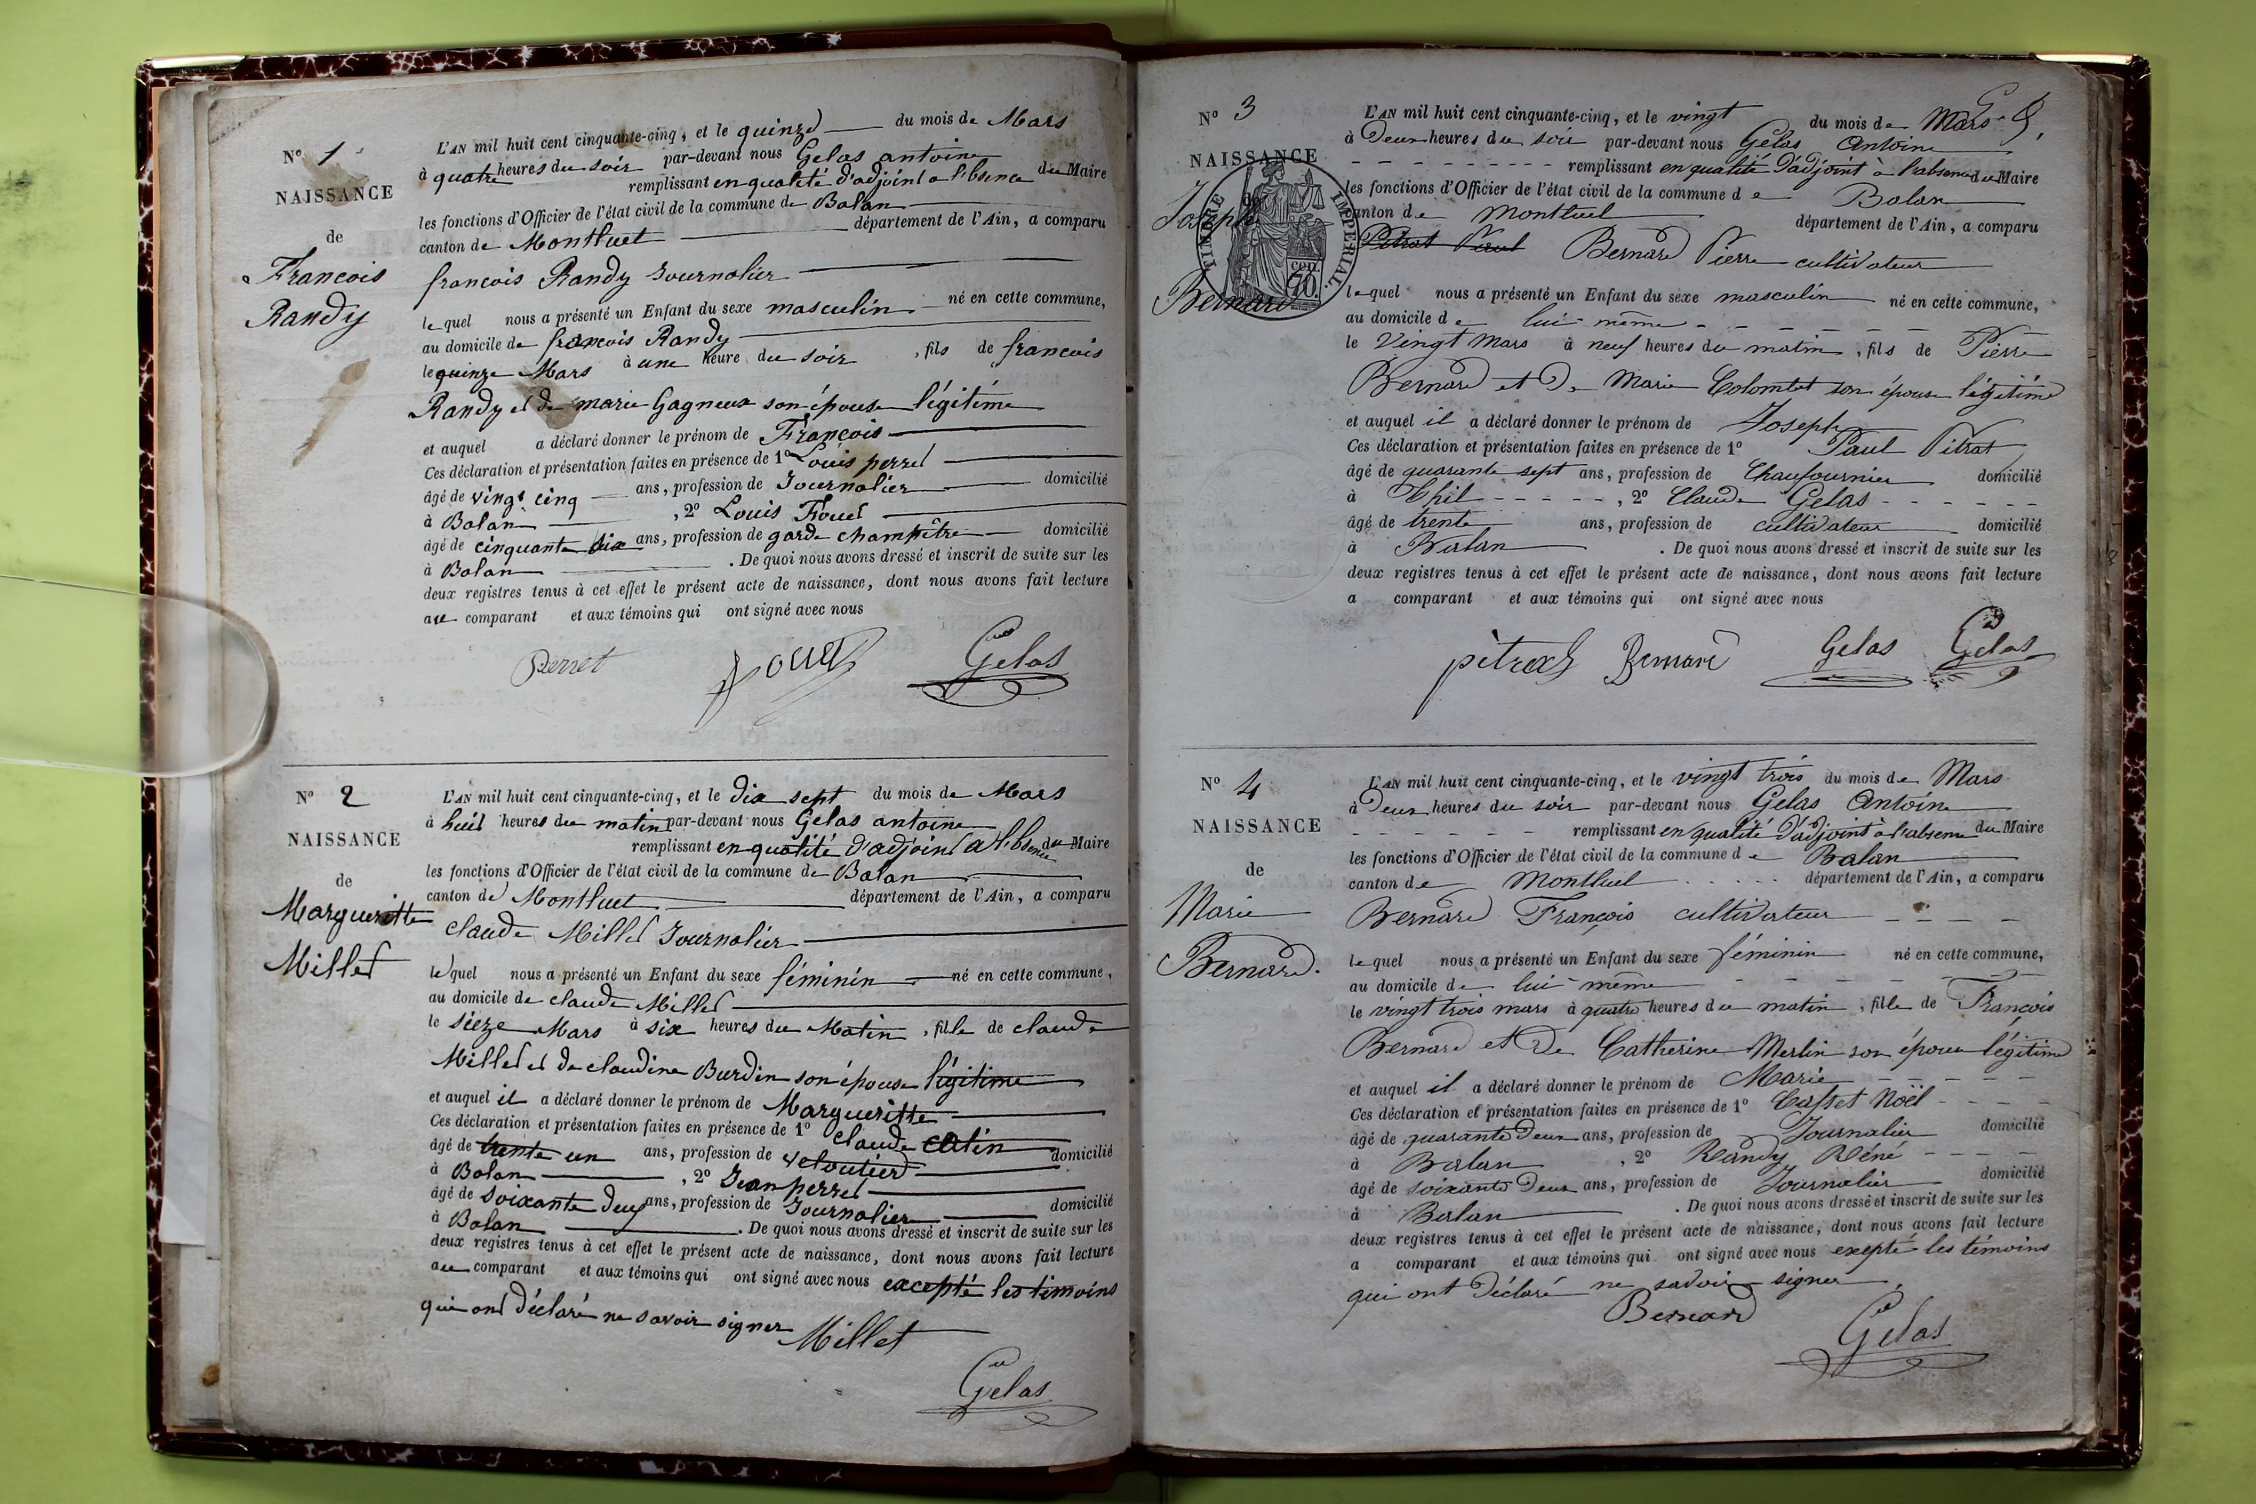 N° 1
NAISSANCE
de
François
Randy
L'AN mil huit cent cinquante-cinq, et le quinze du mois de Mars
à quatre heures du soir par-devant nous Gelas antoine
remplissant en qualité d'adjoint a l'bsence du Maire
les fonctions d'Officier de l'état civil de la commune de Balan
canton de Montluet département de l'Ain, a comparu
françois Randy Journalier
lequel nous a présenté un Enfant du sexe masculin né en cette commune,
au domicile de françois Randy
le quinze Mars à une heure du soir, fils de françois
Randy et de marie Gagneux son épouse légitime
et auquel a déclaré donner le prénom de François
Ces déclaration et présentation faites en présence de 1° Louis perret
âgé de vingt cinq ans, profession de Journalier domicilié
à Balan, 2° Louis Fouet
âgé de cinquante six ans, profession de garde champêtre domicilié
à Balan. De quoi nous avons dressé et inscrit de suite sur les
deux registres tenus à cet effet le présent acte de naissance, dont nous avons fait lecture
au comparant et aux témoins qui ont signé avec nous
Perret Fouet Gelas
N° 2
NAISSANCE
de
Margueritte
Millet
L'AN mil huit cent cinquante-cinq, et le dix sept du mois de Mars
à huit heures du matin par-devant nous Gelas antoine
remplissant en qualité d'adjoint a l'bsence du Maire
les fonctions d'Officier de l'état civil de la commune de Balan
canton de Montluet département de l'Ain, a comparu
claude Millet Journalier
lequel nous a présenté un Enfant du sexe féminin né en cette commune,
au domicile de claude Millet
le sieze Mars à six heures du Matin, fille de claude
Millet et de claudine Burdin son épouse légitime
et auquel il a déclaré donner le prénom de Margueritte
Ces déclaration et présentation faites en présence de 1° claude catin
âgé de trente un ans, profession de veloutier domicilié
à Balan, 2° Jean perret
âgé de soixante deux ans, profession de Journalier domicilié
à Balan. De quoi nous avons dressé et inscrit de suite sur les
deux registres tenus à cet effet le présent acte de naissance, dont nous avons fait lecture
au comparant et aux témoins qui ont signé avec nous excepté les témoins
qui ont déclaré ne savoir signer
Millet
Gelas
N° 3
NAISSANCE
Joseph
Bernard
TIMBRE IMPERIAL.
cen. 70
L'AN mil huit cent cinquante-cinq, et le vingt du mois de Mars
à Deux heures du soir par-devant nous Gelas Antoine
remplissant en qualité D'adjoint à l'absence du Maire
les fonctions d'Officier de l'état civil de la commune de Balan
canton de Montluel département de l'Ain, a comparu
Pitrat Paul Bernard Pierre cultivateur
lequel nous a présenté un Enfant du sexe masculin né en cette commune,
au domicile de lui-même
le Vingt Mars à neuf heures du matin, fils de Pierre
Bernard et De Marie Colombet son épouse légitime
et auquel il a déclaré donner le prénom de Joseph
Ces déclaration et présentation faites en présence de 1° Paul Pitrat
âgé de quarante sept ans, profession de Chaufournier domicilié
à Thil, 2° Claude Gelas
âgé de trente ans, profession de cultivateur domicilié
à Balan. De quoi nous avons dressé et inscrit de suite sur les
deux registres tenus à cet effet le présent acte de naissance, dont nous avons fait lecture
a comparant et aux témoins qui ont signé avec nous
pitrat Bernard Gelas Gelas
N° 4
NAISSANCE
de
Marie
Bernard.
L'AN mil huit cent cinquante-cinq, et le vingt trois du mois de Mars
à Deux heures du soir par-devant nous Gelas Antoine
remplissant en qualité D'adjoint à l'absence du Maire
les fonctions d'Officier de l'état civil de la commune de Balan
canton de Montluel département de l'Ain, a comparu
Bernard François cultivateur
lequel nous a présenté un Enfant du sexe féminin né en cette commune,
au domicile de lui-même
le vingt trois mars à quatre heures du matin, fille de François
Bernard et De Catherine Merlin son épouse légitime
et auquel il a déclaré donner le prénom de Marie
Ces déclaration et présentation faites en présence de 1° Casset Noël
âgé de quarante Deux ans, profession de Journalier domicilié
à Balan, 2° Randy Réné
âgé de soixante Deux ans, profession de Journalier domicilié
à Balan. De quoi nous avons dressé et inscrit de suite sur les
deux registres tenus à cet effet le présent acte de naissance, dont nous avons fait lecture
a comparant et aux témoins qui ont signé avec nous exepté les témoins
qui ont Déclaré ne savoir signer.
Bernard
Gelas